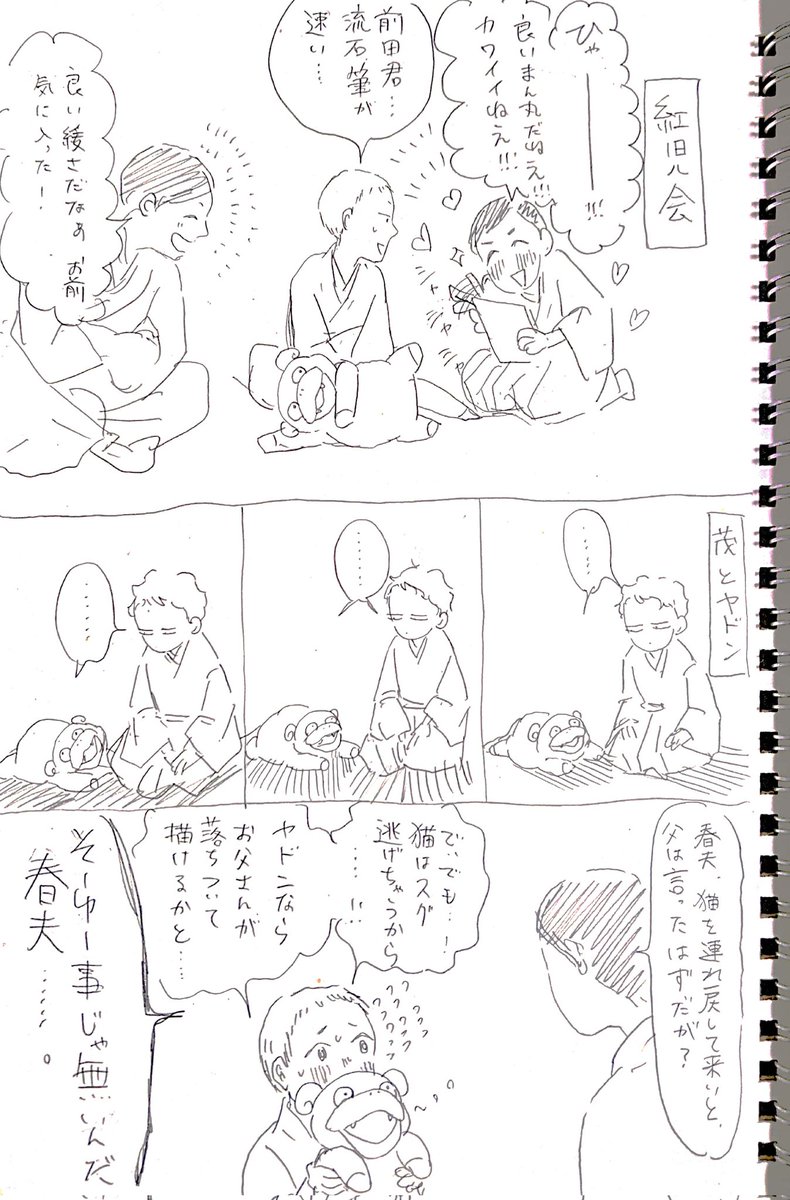 紅児会
ひゃ――――!!!
良いまん丸だねえ!!!
カワイイねえ!!!
前田君…
流石筆が
速い…
良い緩さだなぁ お前
気に入った!
茂とヤドン
……
……
……
春夫、猫を連れ戻して来いと、
父は言ったはずだが?
で、でも…!
猫はスグ
逃げちゃうから
……!!
ヤドンなら
お父さんが
落ちついて
描けるかと……
そーゆー事じゃ無いんだ
春夫……。